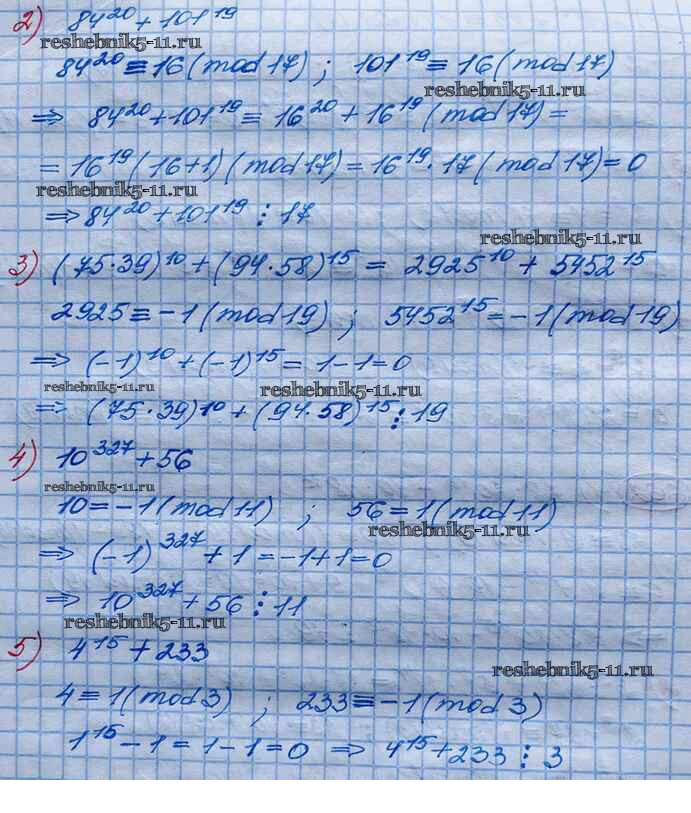 2) 84²⁰ + 101¹⁹
reshebnik5-11.ru
84²⁰ ≡ 16 (mod 17) ; 101¹⁹ ≡ 16 (mod 17)
reshebnik5-11.ru
⇒ 84²⁰ + 101¹⁹ ≡ 16²⁰ + 16¹⁹ (mod 17) =
= 16¹⁹ (16+1) (mod 17) = 16¹⁹ · 17 (mod 17) = 0
reshebnik5-11.ru
⇒ 84²⁰ + 101¹⁹ ⋮ 17
reshebnik5-11.ru
3) (75·39)¹⁰ + (94·58)¹⁵ = 2925¹⁰ + 5452¹⁵
2925 ≡ -1 (mod 19) ; 5452¹⁵ = -1 (mod 19)
⇒ (-1)¹⁰ + (-1)¹⁵ = 1-1 = 0
reshebnik5-11.ru reshebnik5-11.ru
⇒ (75·39)¹⁰ + (94·58)¹⁵ ⋮ 19
4) 10³²⁷ + 56
reshebnik5-11.ru
10 = -1 (mod 11) ; 56 = 1 (mod 11)
reshebnik5-11.ru
⇒ (-1)³²⁷ + 1 = -1+1 = 0
⇒ 10³²⁷ + 56 ⋮ 11
reshebnik5-11.ru
5) 4¹⁵ + 233
reshebnik5-11.ru
4 ≡ 1 (mod 3) ; 233 ≡ -1 (mod 3)
1¹⁵ - 1 = 1 - 1 = 0 ⇒ 4¹⁵ + 233 ⋮ 3